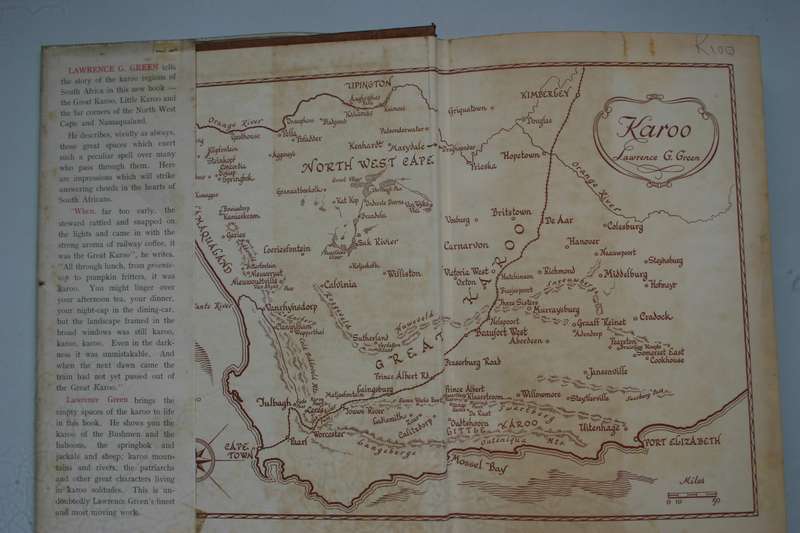 LAWRENCE G. GREEN tells
the story of the karoo regions of
South Africa in this new book —
the Great Karoo, Little Karoo and
the far corners of the North West
Cape and Namaqualand.
He describes, vividly as always,
those great spaces which exert
such a peculiar spell over many
who pass through them. Here
are impressions which will strike
answering chords in the hearts of
South Africans.
"When, far too early, the
steward rattled and snapped on
the lights and came in with the
strong aroma of railway coffee, it
was the Great Karoo", he writes.
"All through lunch, from
to pumpkin fritters, it was
karoo. You might linger over
your afternoon tea, your dinner,
your night-cap in the dining-car,
but the landscape framed in the
broad windows was still karoo,
karoo, karoo. Even in the dark-
ness it was unmistakable. And
when the next dawn came the
train had not yet passed out of
the Great Karoo."
Lawrence Green brings the
empty spaces of the karoo to life
in this book. He shows you the
karoo of the Bushmen and the
baboons, the springbok and
jackals and sheep; karoo moun-
tains and rivers, the patriarchs
and other great characters living
in karoo solitudes. This is un-
doubtedly Lawrence Green's finest
and most moving work.
R100
Karoo
Lawrence G. Green
UPINGTON
KIMBERLEY
Griquatown
Douglas
Orange River
Keimoes
Kakamas
Pella
Pofadder
Kenhardt
Marydale
Putsonderwater
NORTH WEST CAPE
Prieska
Hopetown
Orange River
Springbok
Steinkopf
Concordia
Aggeneys
Granaatboskolk
Kat Kop
Brandvlei
Sak Rivier
NAMAQUALAND
Kamieskroon
Garies
Loeriesfontein
Nieuwoudtville
Vosburg
Britstown
De Aar
Colesburg
Hanover
Naauwpoort
Steynsburg
Carnarvon
Williston
Victoria West
Hutchinson
Richmond
Middelburg
Hofmeyr
Calvinia
Three Sisters
Murraysburg
Vanrhynsdorp
Clanwilliam
Wuppertal
Sutherland
Nuweveld
Roggeveld
Sneeuwberge
Nelspoort
Beaufort West
Graaff Reinet
Cradock
Aberdeen
Pearston
Somerset East
Cookhouse
GREAT KAROO
Fraserburg Road
Jansenville
Prince Albert Rd.
Laingsburg
Matjesfontein
Prince Albert
Klaarstroom
Willowmore
Steytlerville
Tulbagh
Ceres
Touws River
Ladismith
Calitzdorp
De Rust
Oudtshoorn
LITTLE KAROO
Swartberg
Uitenhage
Paarl
Worcester
Langeberge
Outeniqua Mts.
CAPE TOWN
PORT ELIZABETH
Mossel Bay
Miles